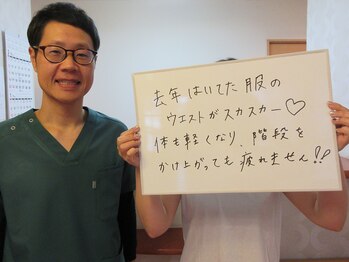 去年はいてた服の
ウエストがスカスカー♡
体も軽くなり、階段を
かけ上がっても疲れません!!